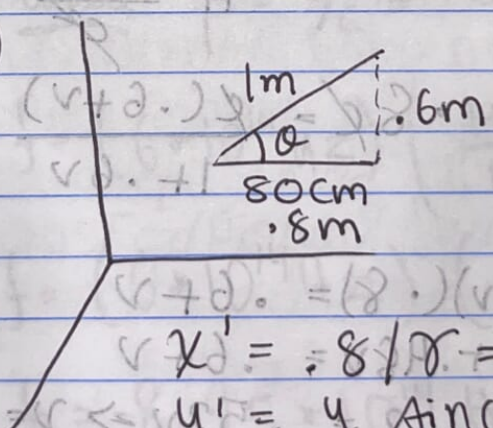 1m
.6m
θ
80cm
.8m
x' = .8/γ =
y' = y sin